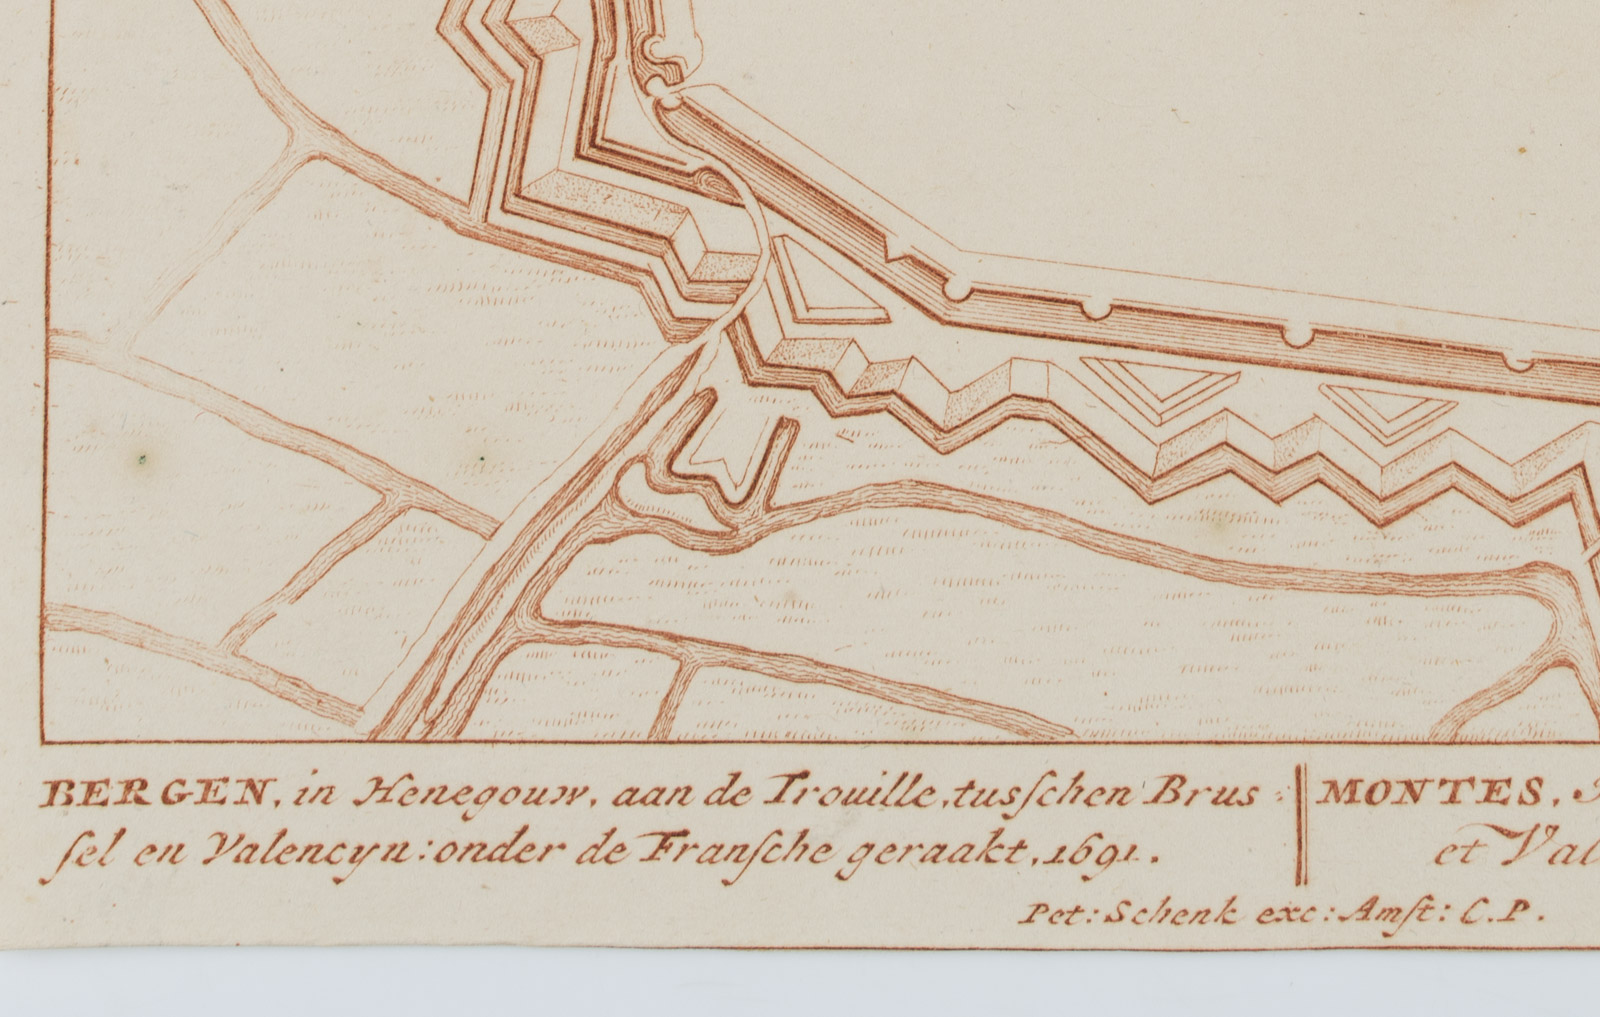 BERGEN, in Henegouw, aan de Trouille, tusſchen Brus
ſel en Valencyn: onder de Franſche geraakt, 1691.
MONTES,
et Val
Pet: Schenk exc: Amſt: C.P.